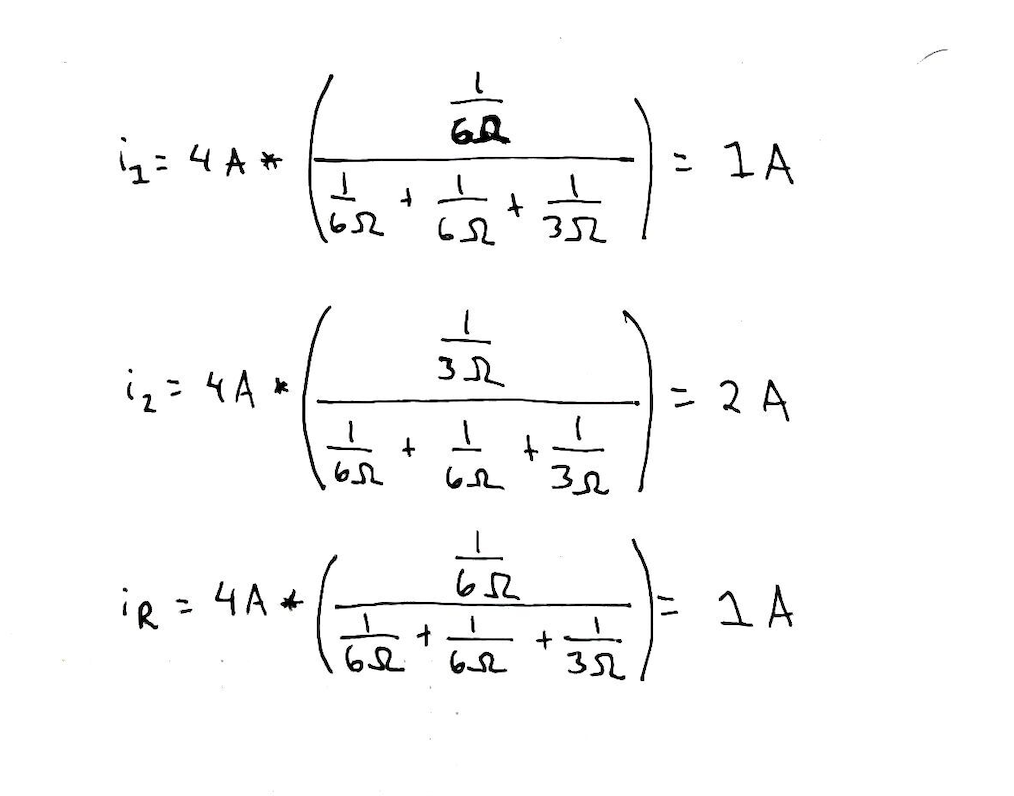 i₁ = 4 A * ( (1/6Ω) / (1/6Ω + 1/6Ω + 1/3Ω) ) = 1 A
i₂ = 4 A * ( (1/3Ω) / (1/6Ω + 1/6Ω + 1/3Ω) ) = 2 A
i_R = 4 A * ( (1/6Ω) / (1/6Ω + 1/6Ω + 1/3Ω) ) = 1 A